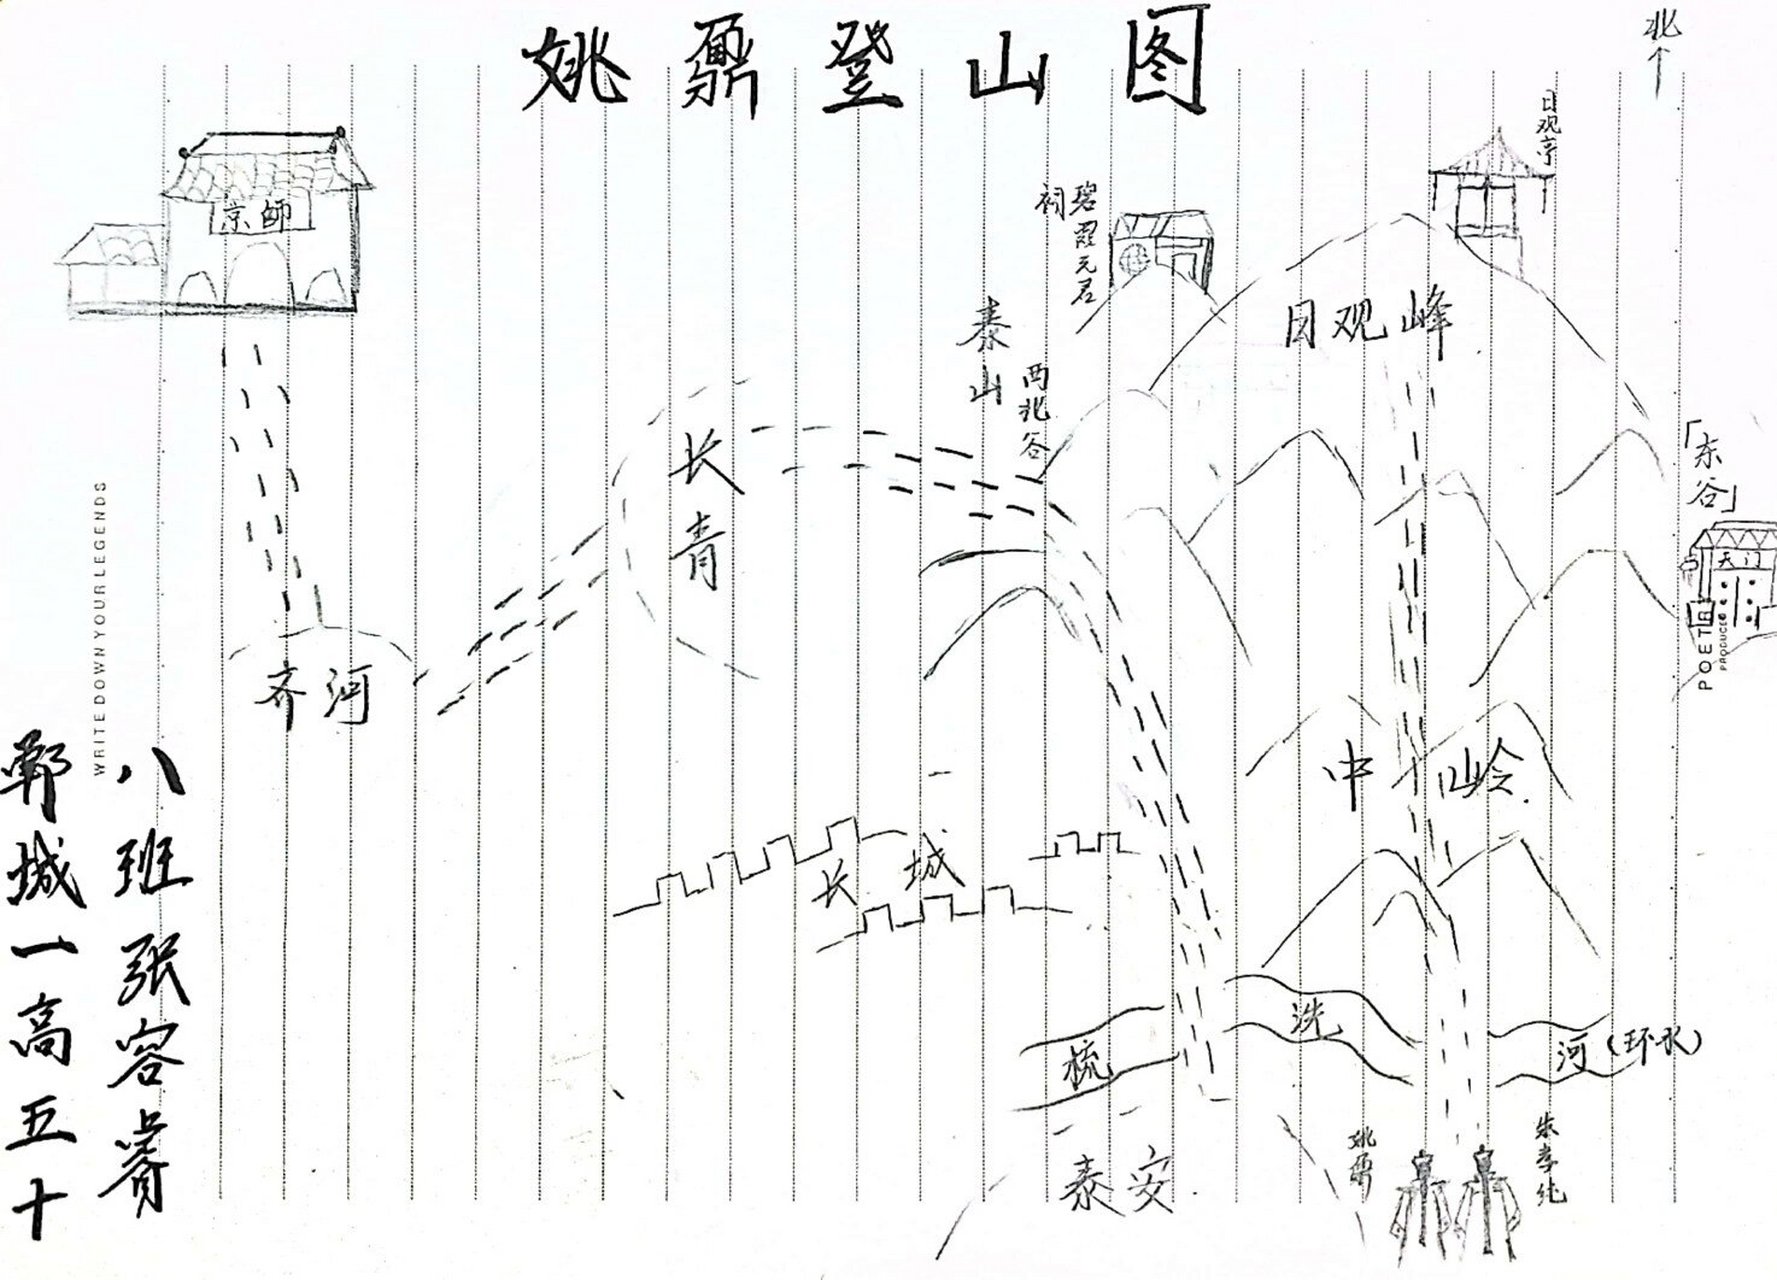 姚鼐登山图
北
日观亭
京師
碧霞元君
祠
日观峰
泰山
西北谷
「东谷」
长青
天门
WRITE DOWN YOUR LEGENDS
POETR
PRODUCE
齐河
中岭
长城
梳洗河(环水)
泰安
姚鼐
朱孝纯
八班张容睿
郓城一高五十